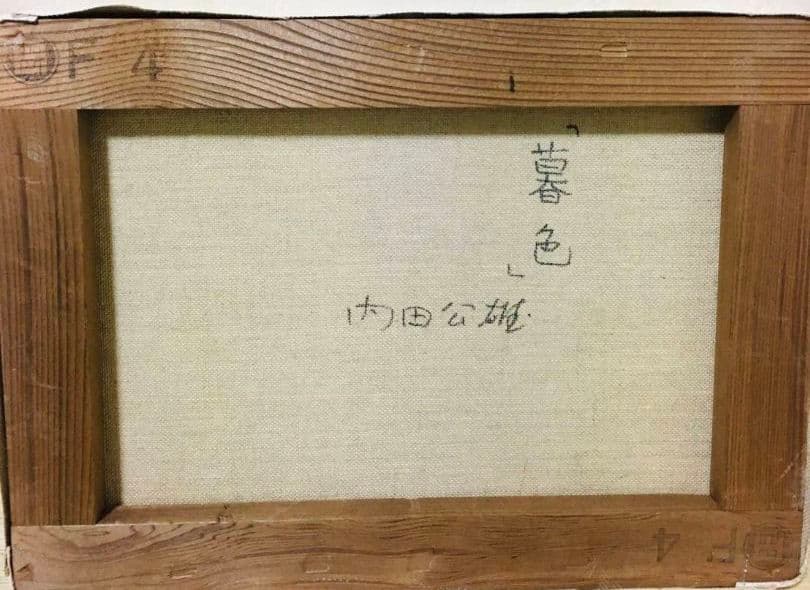 F 4
「暮色」
内田公雄
F 4